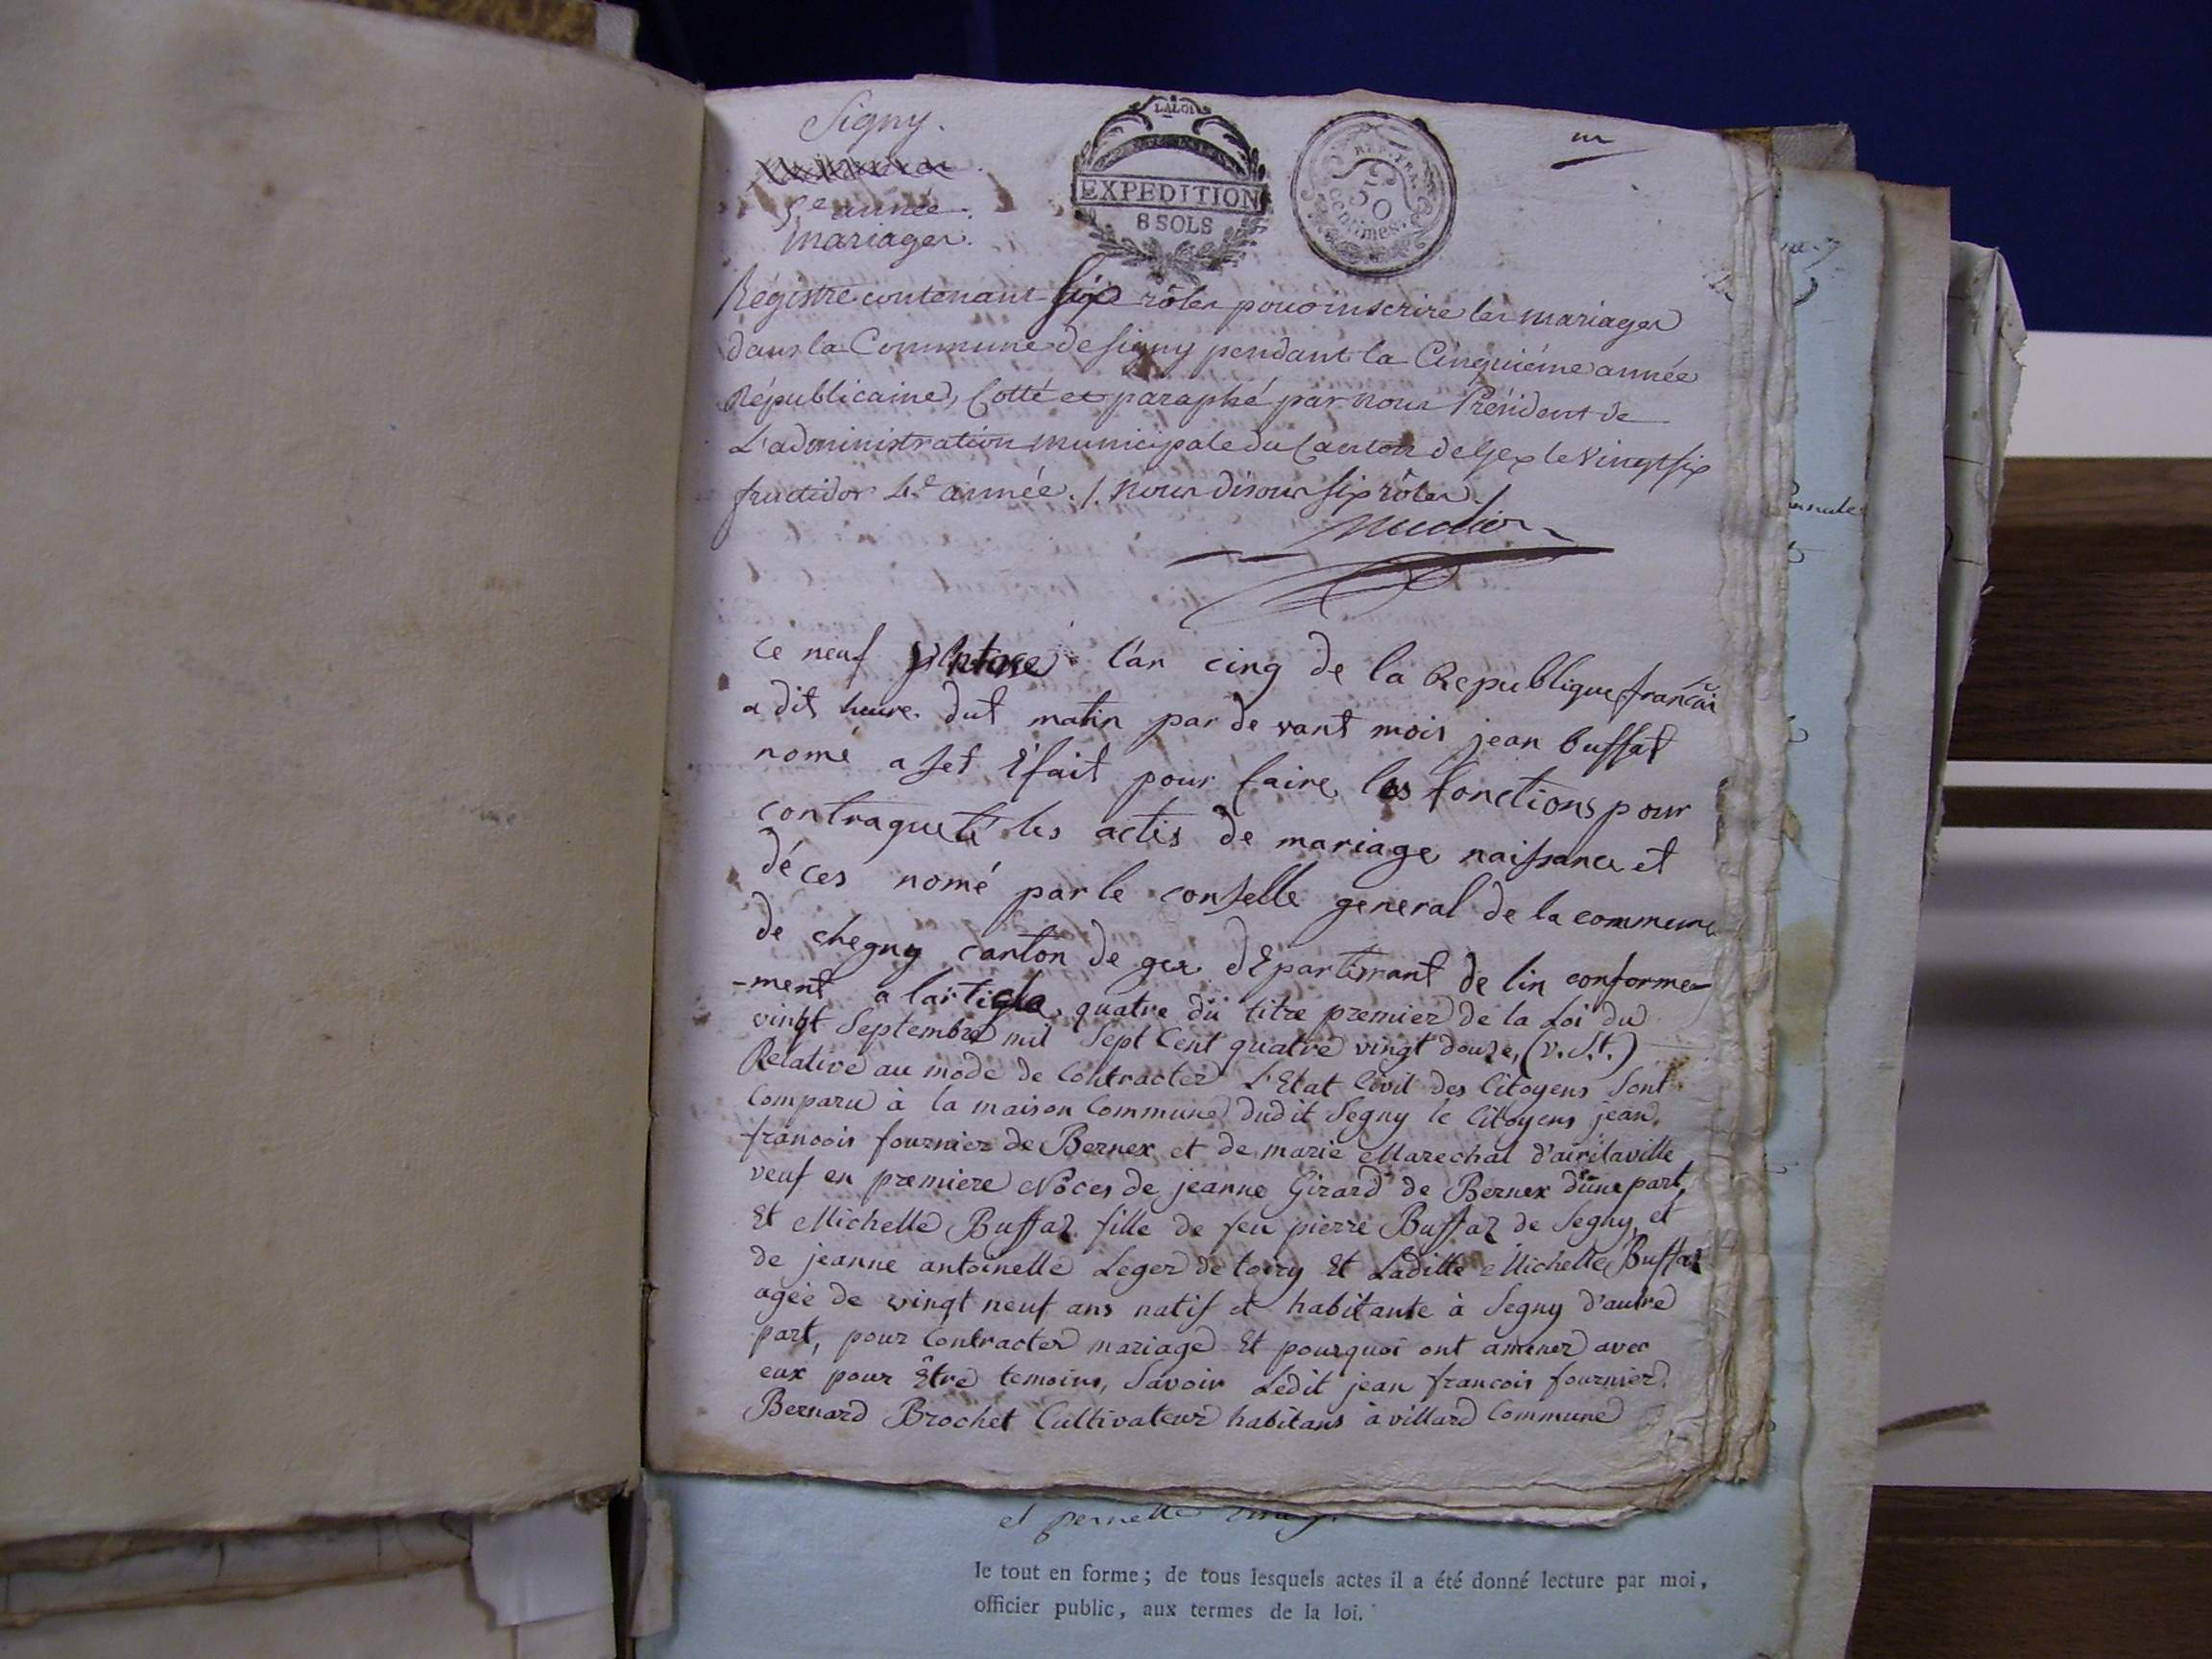 Signy.
5e année.
mariages.
LA LOI
EXPEDITION
8 SOLS
REP. FRA.
50
centimes.
Régistre contenant six rôles pour inscrire les mariages
dans la Commune de Signy pendant la Cinquième année
Républicaine, Cotté et paraphé par nous Président de
L'administration municipale du Canton de Gex le vingt six
fructidor 4e année ./. nous disons six rôles ./.
Ce neuf l'an cinq de la Republique françai
a dit heure dut matin par de vant mois jean buffat
nomé a set Efait pour faire les fonctions pour
contragueté les actis de mariage naissance et
déces nomé par le conselle general de la commune
de chegny canton de gex dEpartimant de lin conforme-
-ment a lartigle quatre dü titre premier de la Loi du
vingt Septembre mil Sept Cent quatre vingt douze, (v.St.)
Relative au mode de Contracter L'Etat Civil des Citoyens Sont
Comparu à la maison Commune dudit Segny le Citoyens jean
francois fournier de Bernex et de marie Marechal d'airilaville
veuf en premiere Noces de jeanne Girard de Bernex düne part,
Et Michelle Buffaz fille de feu pierre Buffaz de Segny, et
de jeanne antoinelle Leger de toiry Et Ladille Michelle Buffaz
agée de vingt neuf ans natif et habitante à Segny d'autre
part, pour Contracter mariage Et pourquoi ont amener avec
eux pour Être temoins, Savoir Ledit jean francois fournier.
Bernard Brochet Cultivateur habitans à villard Commune
et pernette
le tout en forme ; de tous lesquels actes il a été donné lecture par moi,
officier public, aux termes de la loi.